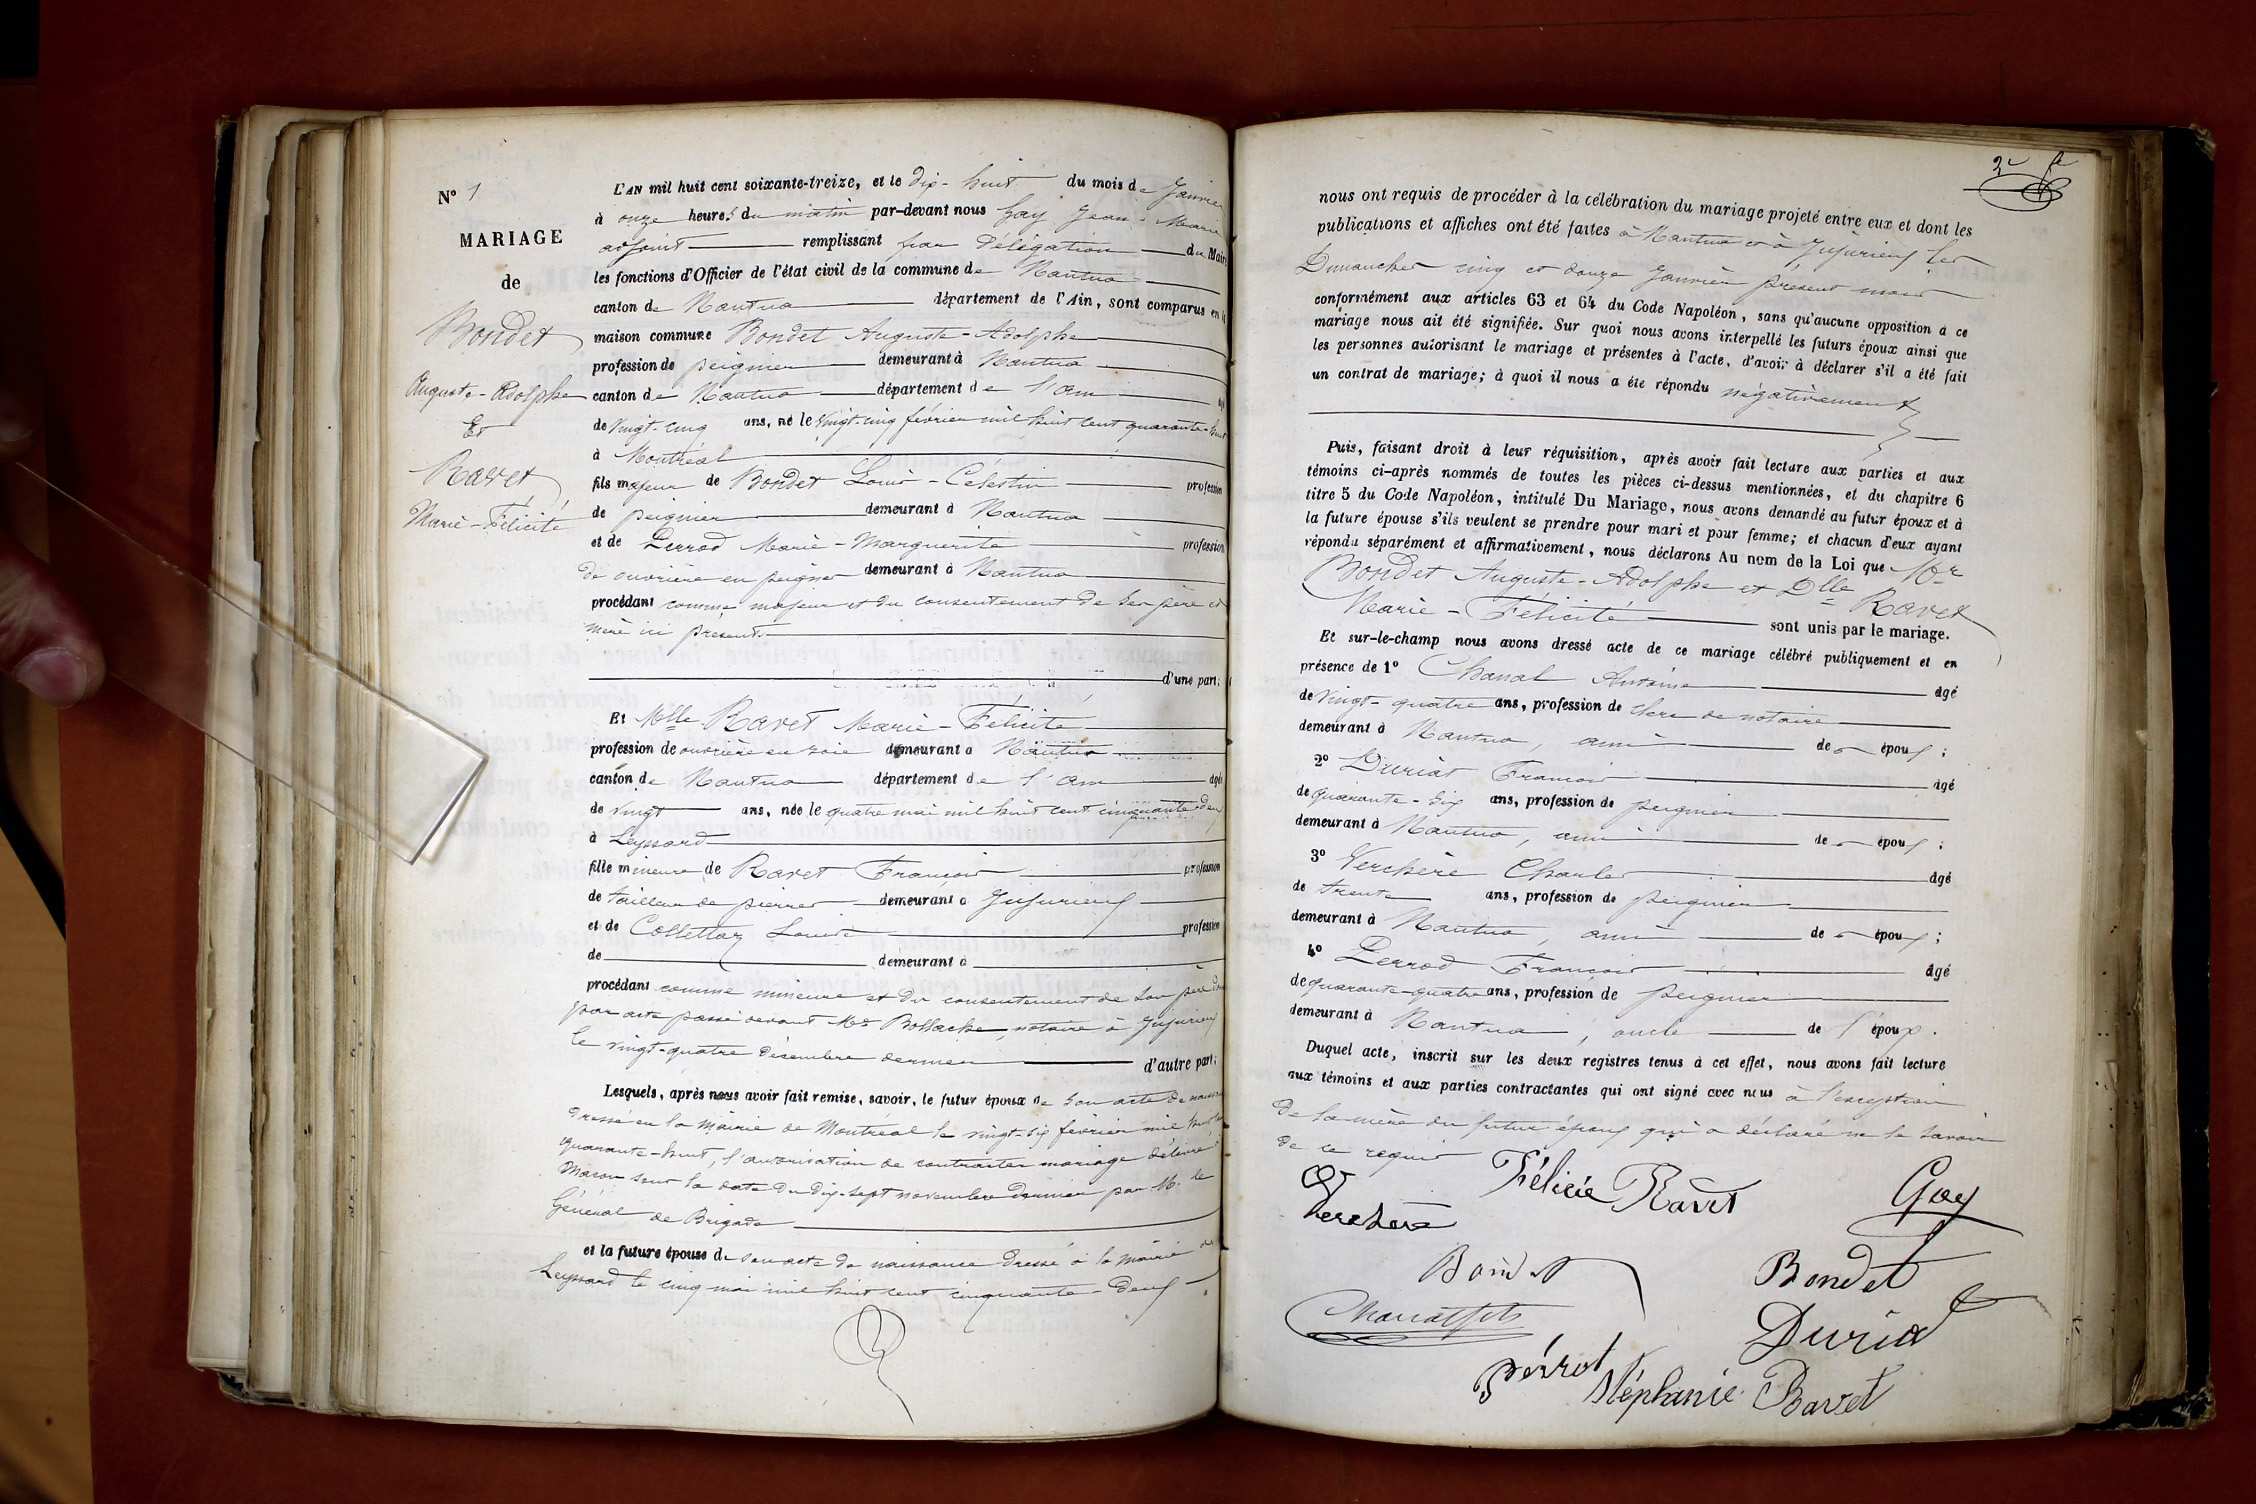 N° 1
MARIAGE
de
Bondet
Auguste-Adolphe
Et
Ravet
Marie-Félicité
L'AN mil huit cent soixante-treize, et le dix-huit du mois de Janvier
à onze heures du matin par-devant nous Gay Jean-Marie
adjoint remplissant par délégation du Maire
les fonctions d'Officier de l'état civil de la commune de Nantua
canton de Nantua département de l'Ain, sont comparus en la
maison commune Bondet Auguste-Adolphe
profession de peignier demeurant à Nantua
canton de Nantua département de l'ain
de vingt-cinq ans, né le vingt-cinq février mil huit cent quarante-huit
à Montréal
fils majeur de Bondet Louis-Célestin profession
de peignier demeurant à Nantua
et de Perrod Marie-Marguerite profession
de ouvrière en peignes demeurant à Nantua
procédant comme majeur et du consentement de ses père et
mère ici présents
d'une part;
Et Mlle Ravet Marie-Félicité
profession de ouvrière en soie demeurant à Nantua
canton de Nantua département de l'ain agée
de vingt ans, née le quatre mai mil huit cent cinquante-deux
à Leyssard
fille mineure de Ravet François profession
de tailleur de pierres demeurant à Jujurieux
et de Collettaz Louise profession
de demeurant à
procédant comme mineure et du consentement de son père
par acte passé devant Me Bollache, notaire à Jujurieux
le vingt-quatre décembre dernier d'autre part;
Lesquels, après nous avoir fait remise, savoir, le futur époux de son acte de
dressé en la mairie de Montréal le vingt-six février mil huit cent
quarante-huit, l'autorisation de contracter mariage délivrée
Macon sous la date du dix-sept novembre dernier par M. le
Général de Brigade
et la future épouse de son acte de naissance dressé à la mairie de
Leyssard le cinq mai mil huit cent cinquante-deux
2e
nous ont requis de procéder à la célébration du mariage projeté entre eux et dont les
publications et affiches ont été faites à Nantua et à Jujurieux les
Dimanches cinq et douze Janvier présent mois
conformément aux articles 63 et 64 du Code Napoléon, sans qu'aucune opposition à ce
mariage nous ait été signifiée. Sur quoi nous avons interpellé les futurs époux ainsi que
les personnes autorisant le mariage et présentes à l'acte, d'avoir à déclarer s'il a été fait
un contrat de mariage; à quoi il nous a été répondu négativement
Puis, faisant droit à leur réquisition, après avoir fait lecture aux parties et aux
témoins ci-après nommés de toutes les pièces ci-dessus mentionnées, et du chapitre 6
titre 5 du Code Napoléon, intitulé Du Mariage, nous avons demandé au futur époux et à
la future épouse s'ils veulent se prendre pour mari et pour femme; et chacun d'eux ayant
répondu séparément et affirmativement, nous déclarons Au nom de la Loi que Mr
Bondet Auguste-Adolphe et Dlle Ravet
Marie-Félicité sont unis par le mariage.
Et sur-le-champ nous avons dressé acte de ce mariage célébré publiquement et en
présence de 1° Chanal Antoine âgé
de vingt-quatre ans, profession de clerc de notaire
demeurant à Nantua, ami de époux;
2° Duriat François âgé
de quarante-six ans, profession de peignier
demeurant à Nantua, ami de époux;
3° Verchère Charles âgé
de trente ans, profession de peignier
demeurant à Nantua, ami de époux;
4° Perrod François âgé
de quarante-quatre ans, profession de peignier
demeurant à Nantua, oncle de l'époux.
Duquel acte, inscrit sur les deux registres tenus à cet effet, nous avons fait lecture
aux témoins et aux parties contractantes qui ont signé avec nous à l'exception
de la mère du futur époux qui a déclaré ne le savoir
de ce requis
Félicie Ravet
Gay
Verchère
Bondet
Bondet
Chanal fils
Duriat
Perrot
Stéphanie Ravet